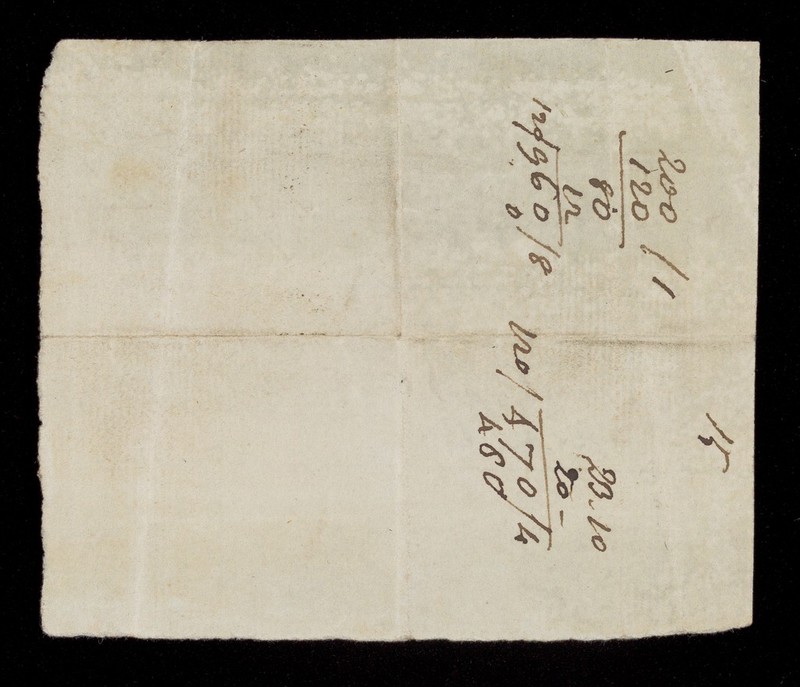 200 / 1
120
80
12
120/960/8
0
15
23.10
20-
120/470/4
480